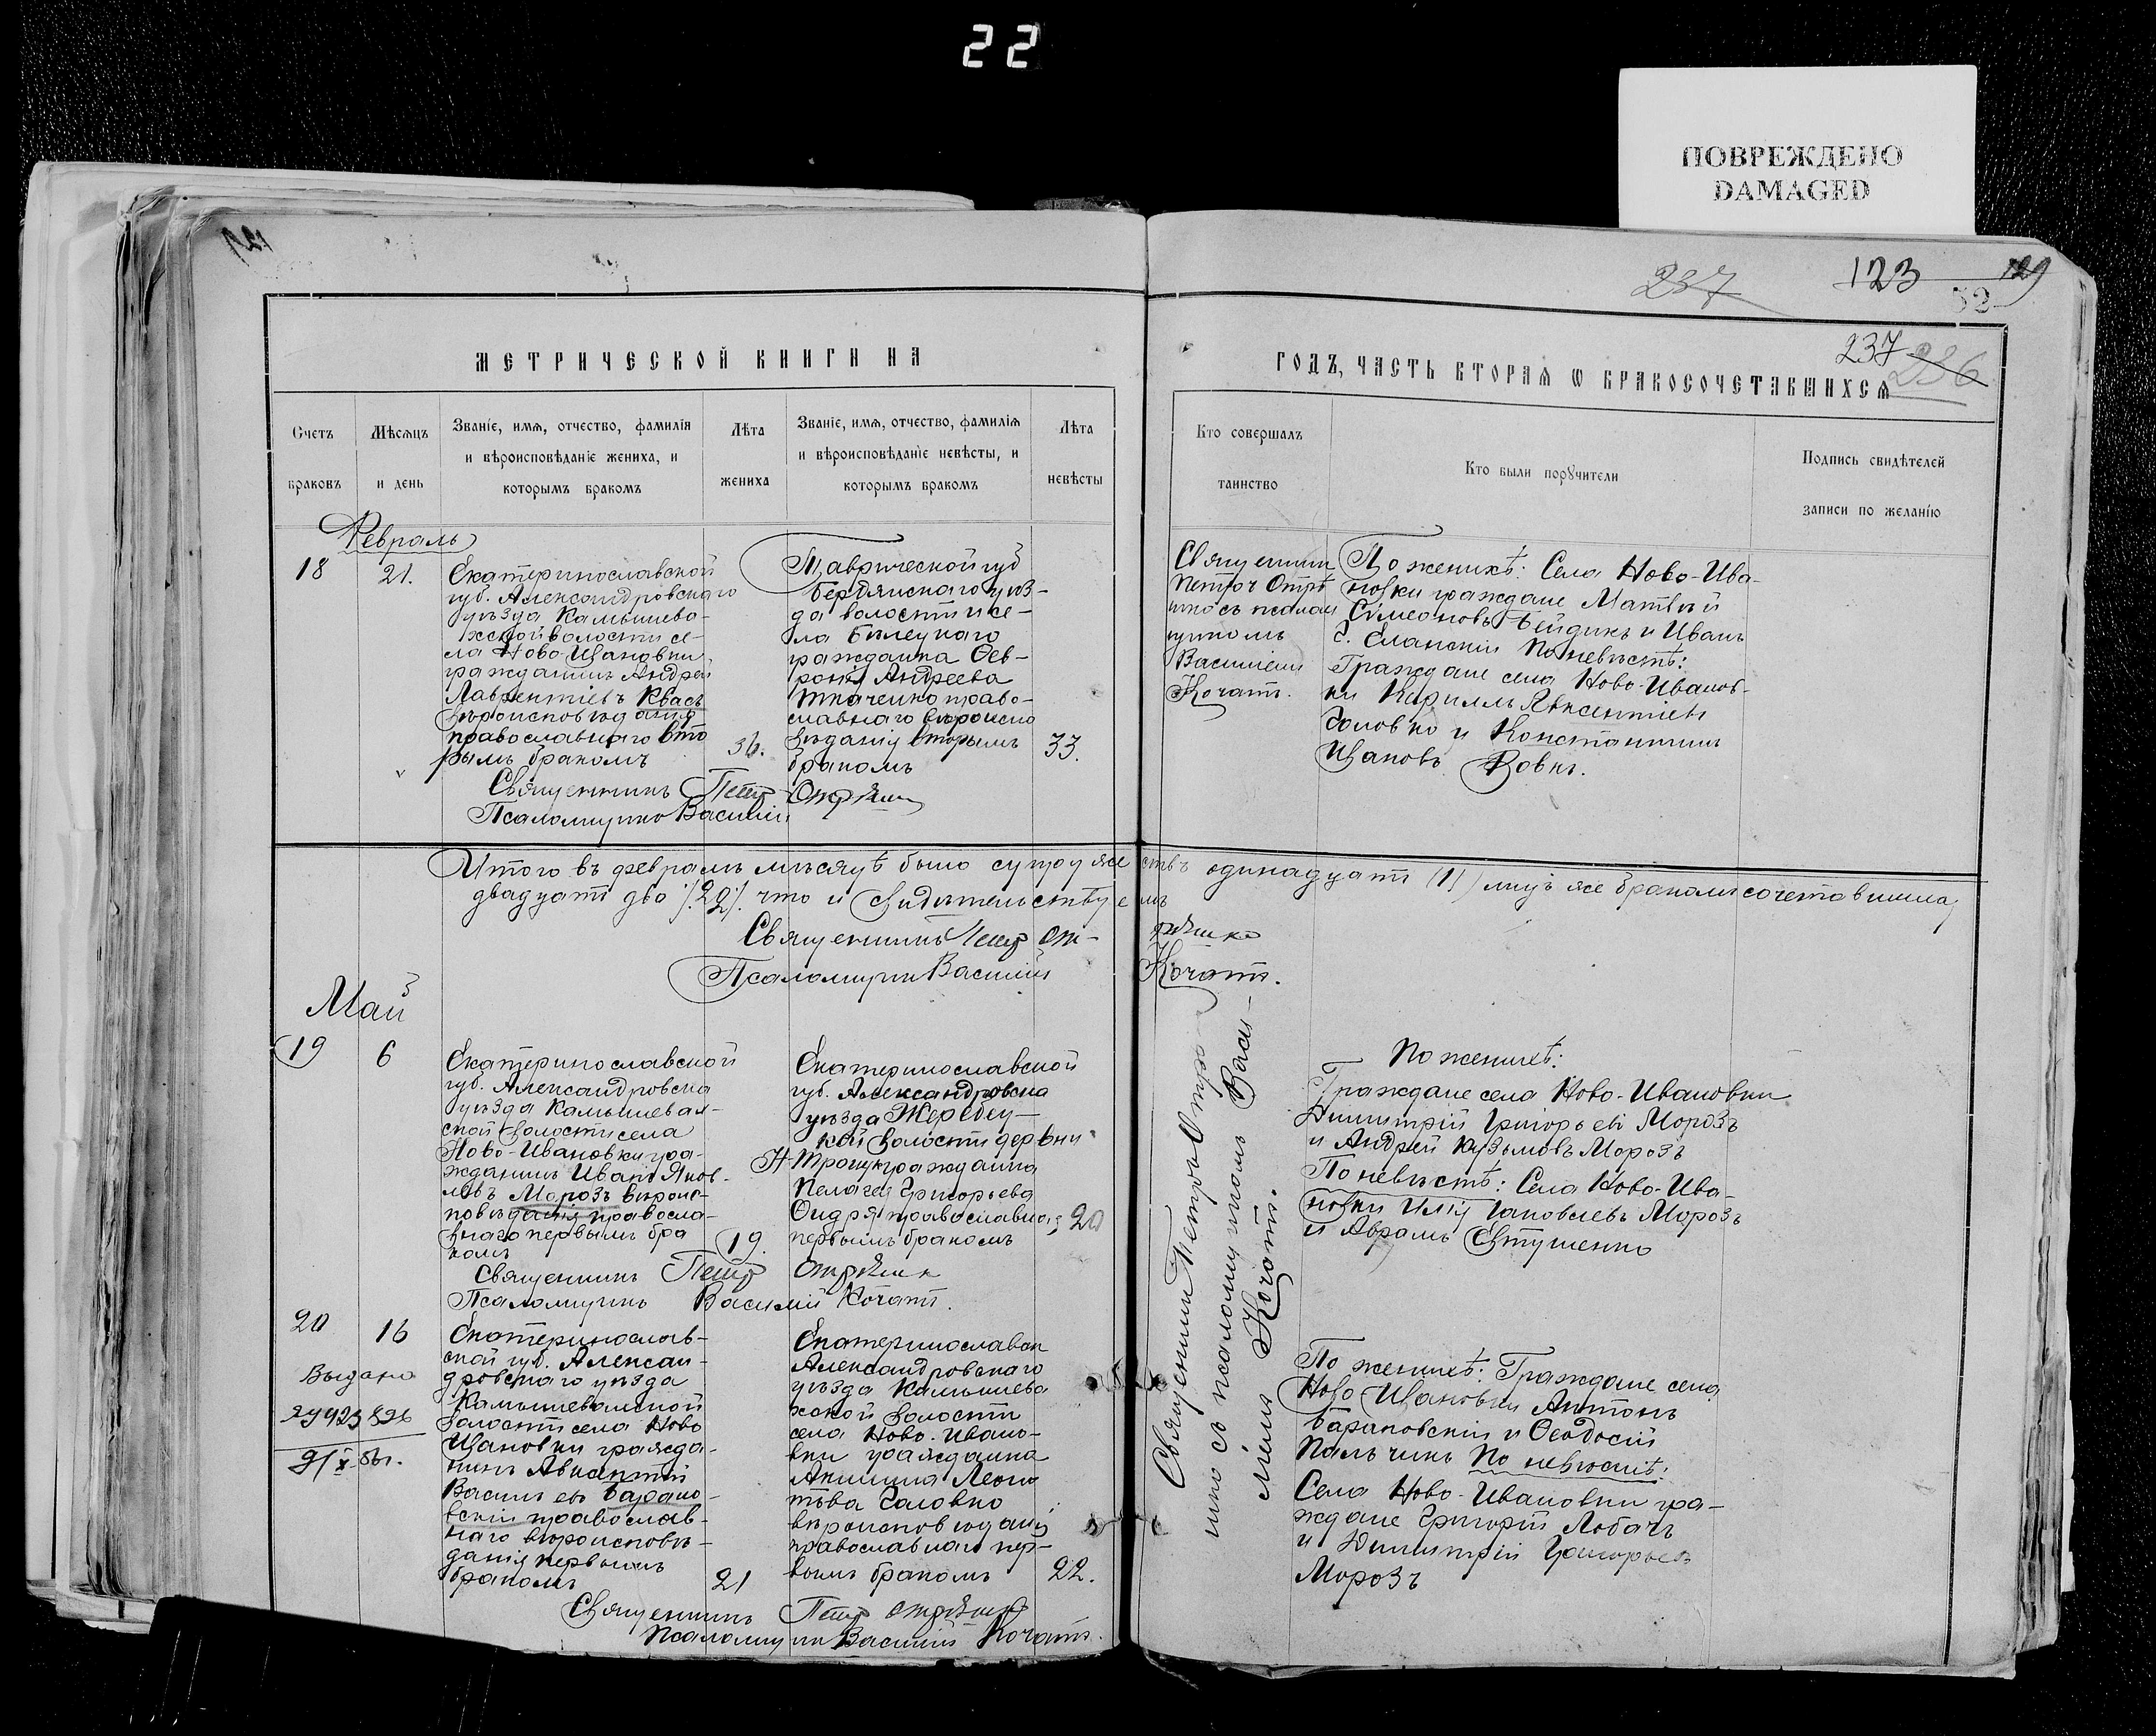 22
ПОВРЕЖДЕНО
DAMAGED
237
123
129
52
237
236
МЕТРИЧЕСКОЙ КНИГИ НА
ГОДЪ, ЧАСТЬ ВТОРАЯ Ѡ БРАКОСОЧЕТАВШИХСЯ
Счетъ браковъ
Мѣсяцъ и день
Званіе, имя, отчество, фамилія
и вѣроисповѣданіе жениха, и
которымъ бракомъ
Лѣта жениха
Званіе, имя, отчество, фамилія
и вѣроисповѣданіе невѣсты, и
которымъ бракомъ
Лѣта невѣсты
Кто совершалъ таинство
Кто были порꙋчители
Подпись свидѣтелей
записи по желанію
Февраль
18
21.
Екатеринославской
губ. Александровскаго
уѣзда Камышева-
хской волости се-
ла Ново-Ивановки
гражданинъ Андрей
Лаврентіевъ Квасъ
вѣроисповѣданія
православнаго вто
рымъ бракомъ
36.
Таврической губ
Бердянскаго уѣз-
да волости и се-
ла Бѣлецкаго
гражданка Фев-
ронія Андреева
Ткаченко право-
славнаго вѣроиспо
вѣданія вторымъ
бракомъ
33.
Священник
Петръ Отрѣ
шко съ псалом
щикомъ
Василіем
Кочатъ.
По женихѣ: Села Ново-Ива-
новки граждане Матвѣй
Симеоновъ Бейдикъ и Иванъ
Г. Еланскій По невѣстѣ:
Граждане села Ново-Иванов-
ки Кириллъ Авксентіев
Головко и Константинъ
Ивановъ Вовкъ.
Священникъ Петр Отрѣшко
Псаломщикъ Василій
Итого въ февралѣ мѣсяцѣ было супружествъ одинадцатъ (11) лицъ же бракомъ сочетавшихся
двадцатъ два /.22/. что и свидѣтельствуемъ
Священникъ Петр Отрѣшко
Псаломщик Василій Кочатъ.
Май
19
6
Екатеринославской
губ. Александровска
уѣзда Камышевах-
ской волости села
Ново-Ивановки гра-
жданинъ Иванъ Яков-
левъ Морозъ вѣроис-
повѣданія правосла-
внаго первымъ бра
комъ
19.
Екатеринославской
губ. Александровска
уѣзда Жеребец-
кой волости дервни
гражданка
Пелагея Григорьева
православная
первымъ бракомъ
20
Священник Петръ Отрѣ
шко съ псаломщикомъ Васи-
ліем Кочатъ.
По женихѣ:
Граждане села Ново-Ивановки
Димитрій Григорьевъ Морозъ
и Андрей Кузьмовъ Морозъ
По невѣстѣ: Села Ново-Ива-
новки Илія Іаковлевъ Морозъ
и Аврамъ Евтушенко
Священникъ Петр Отрѣшко
Псаломщикъ Василій Кочатъ.
20
16
Выдано
Екатеринослав-
ской губ. Алексан-
дровскаго уѣзда
Камышевахской
волости села Ново
Ивановки гражда-
нинъ Авксентій
Васильевъ Барано-
вскій православ-
наго вѣроисповѣ-
данія первымъ
бракомъ
21
Екатеринославск
Александровскаго
уѣзда Камышева
хской волости
села Ново-Ивано-
вки гражданка
Акилина Леон
Головко
вѣроисповѣданія
православнаго пер-
вымъ бракомъ
22.
По женихѣ: Граждане села
Ново Ивановки Антонъ
Барановскій и Ѳеодосій
Пальчикъ По невѣстѣ:
Села Ново-Ивановки гра-
ждане Григорій Лобачъ
и Димитрій Григорьевъ
Морозъ
Священникъ Петр Отрѣшко
Псаломщик Василій Кочатъ.